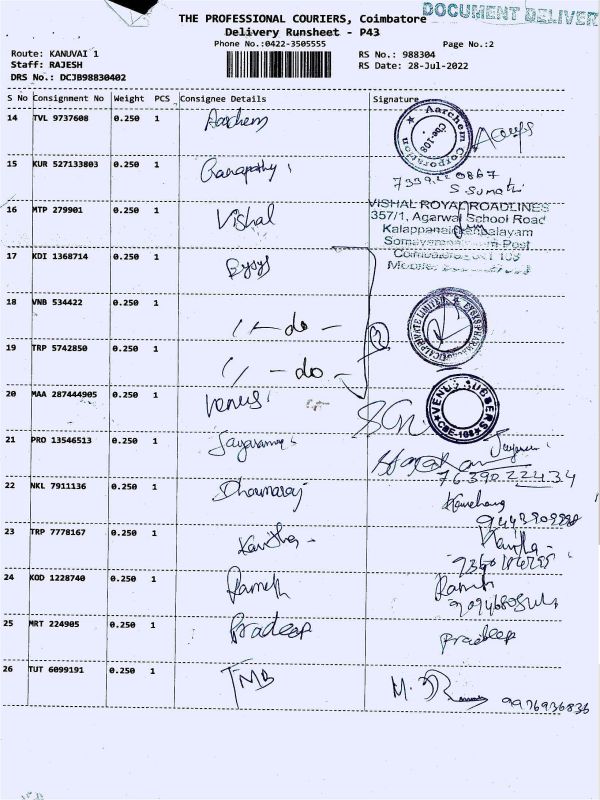 DOCUMENT DELIVER
THE PROFESSIONAL COURIERS, Coimbatore
Delivery Runsheet - P43
Phone No.:0422-3505555
Page No.:2
Route: KANUVAI 1
Staff: RAJESH
DRS No.: DCJB98830402
RS No.: 988304
RS Date: 28-Jul-2022
S No Consignment No Weight PCS Consignee Details Signature
14 TVL 9737608 0.250 1 Aarchem
Aarchem Corporation
Cbe-108
15 KUR 527133803 0.250 1 Ganapathy
S. Sumathi
16 MTP 279901 0.250 1 Vishal
VISHAL ROYAL ROADLINES
357/1, Agarwal School Road
17 KDI 1368714 0.250 1
18 VNB 534422 0.250 1 - do -
19 TRP 5742850 0.250 1 - do -
20 MAA 287444905 0.250 1 Venus
VENUS
CBE-108
21 PRO 13546513 0.250 1
76390 22434
22 NKL 7911136 0.250 1
23 TRP 7778167 0.250 1 Kavitha - Kavitha
24 KOD 1228740 0.250 1 Ramesh
25 MRT 224905 0.250 1 Pradeep Pradeep
26 TUT 6099191 0.250 1 TMB
9976936836